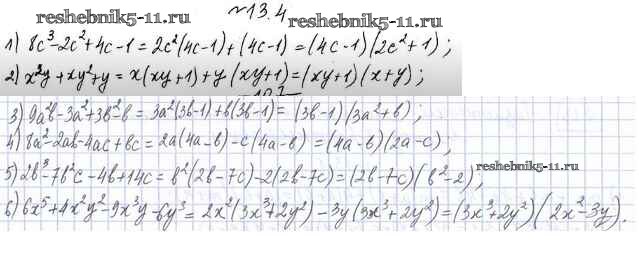 №13.4
reshebnik5-11.ru
reshebnik5-11.ru
1) 8c³-2c²+4c-1=2c²(4c-1)+(4c-1)=(4c-1)(2c²+1);
2) x²y+xy²+y=x(xy+1)+y(xy+1)=(xy+1)(x+y);
3) 9a²b-3a²+3b²-b=3a²(3b-1)+b(3b-1)=(3b-1)(3a²+b);
4) 8a²-2ab-4ac+bc=2a(4a-b)-c(4a-b)=(4a-b)(2a-c);
5) 2b³-7b²c-4b+14c=b²(2b-7c)-2(2b-7c)=(2b-7c)(b²-2);
reshebnik5-11.ru
6) 6x⁵+4x²y²-9x³y-6y³=2x²(3x³+2y²)-3y(3x³+2y²)=(3x³+2y²)(2x²-3y).